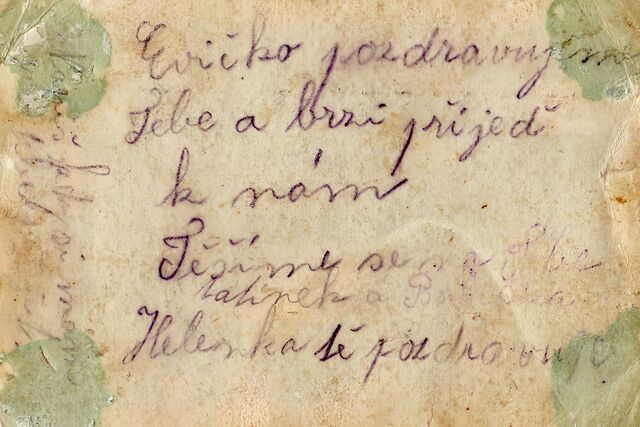 Evičko pozdravujíme
Tebe a brzi přijeď
k nám
Těšíme se na Tebe
tatínek a Babička
Helenka tě pozdravuje